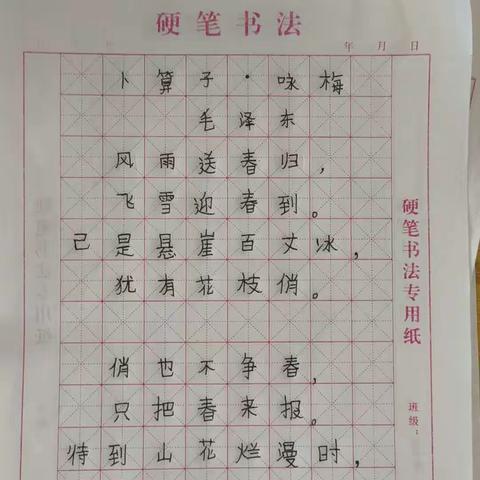 硬笔书法
年 月 日
卜算子·咏梅
毛泽东
风雨送春归，
飞雪迎春到。
己是悬崖百丈冰，
犹有花枝俏。
俏也不争春，
只把春来报。
待到山花烂漫时，
硬笔书法专用纸
班级：